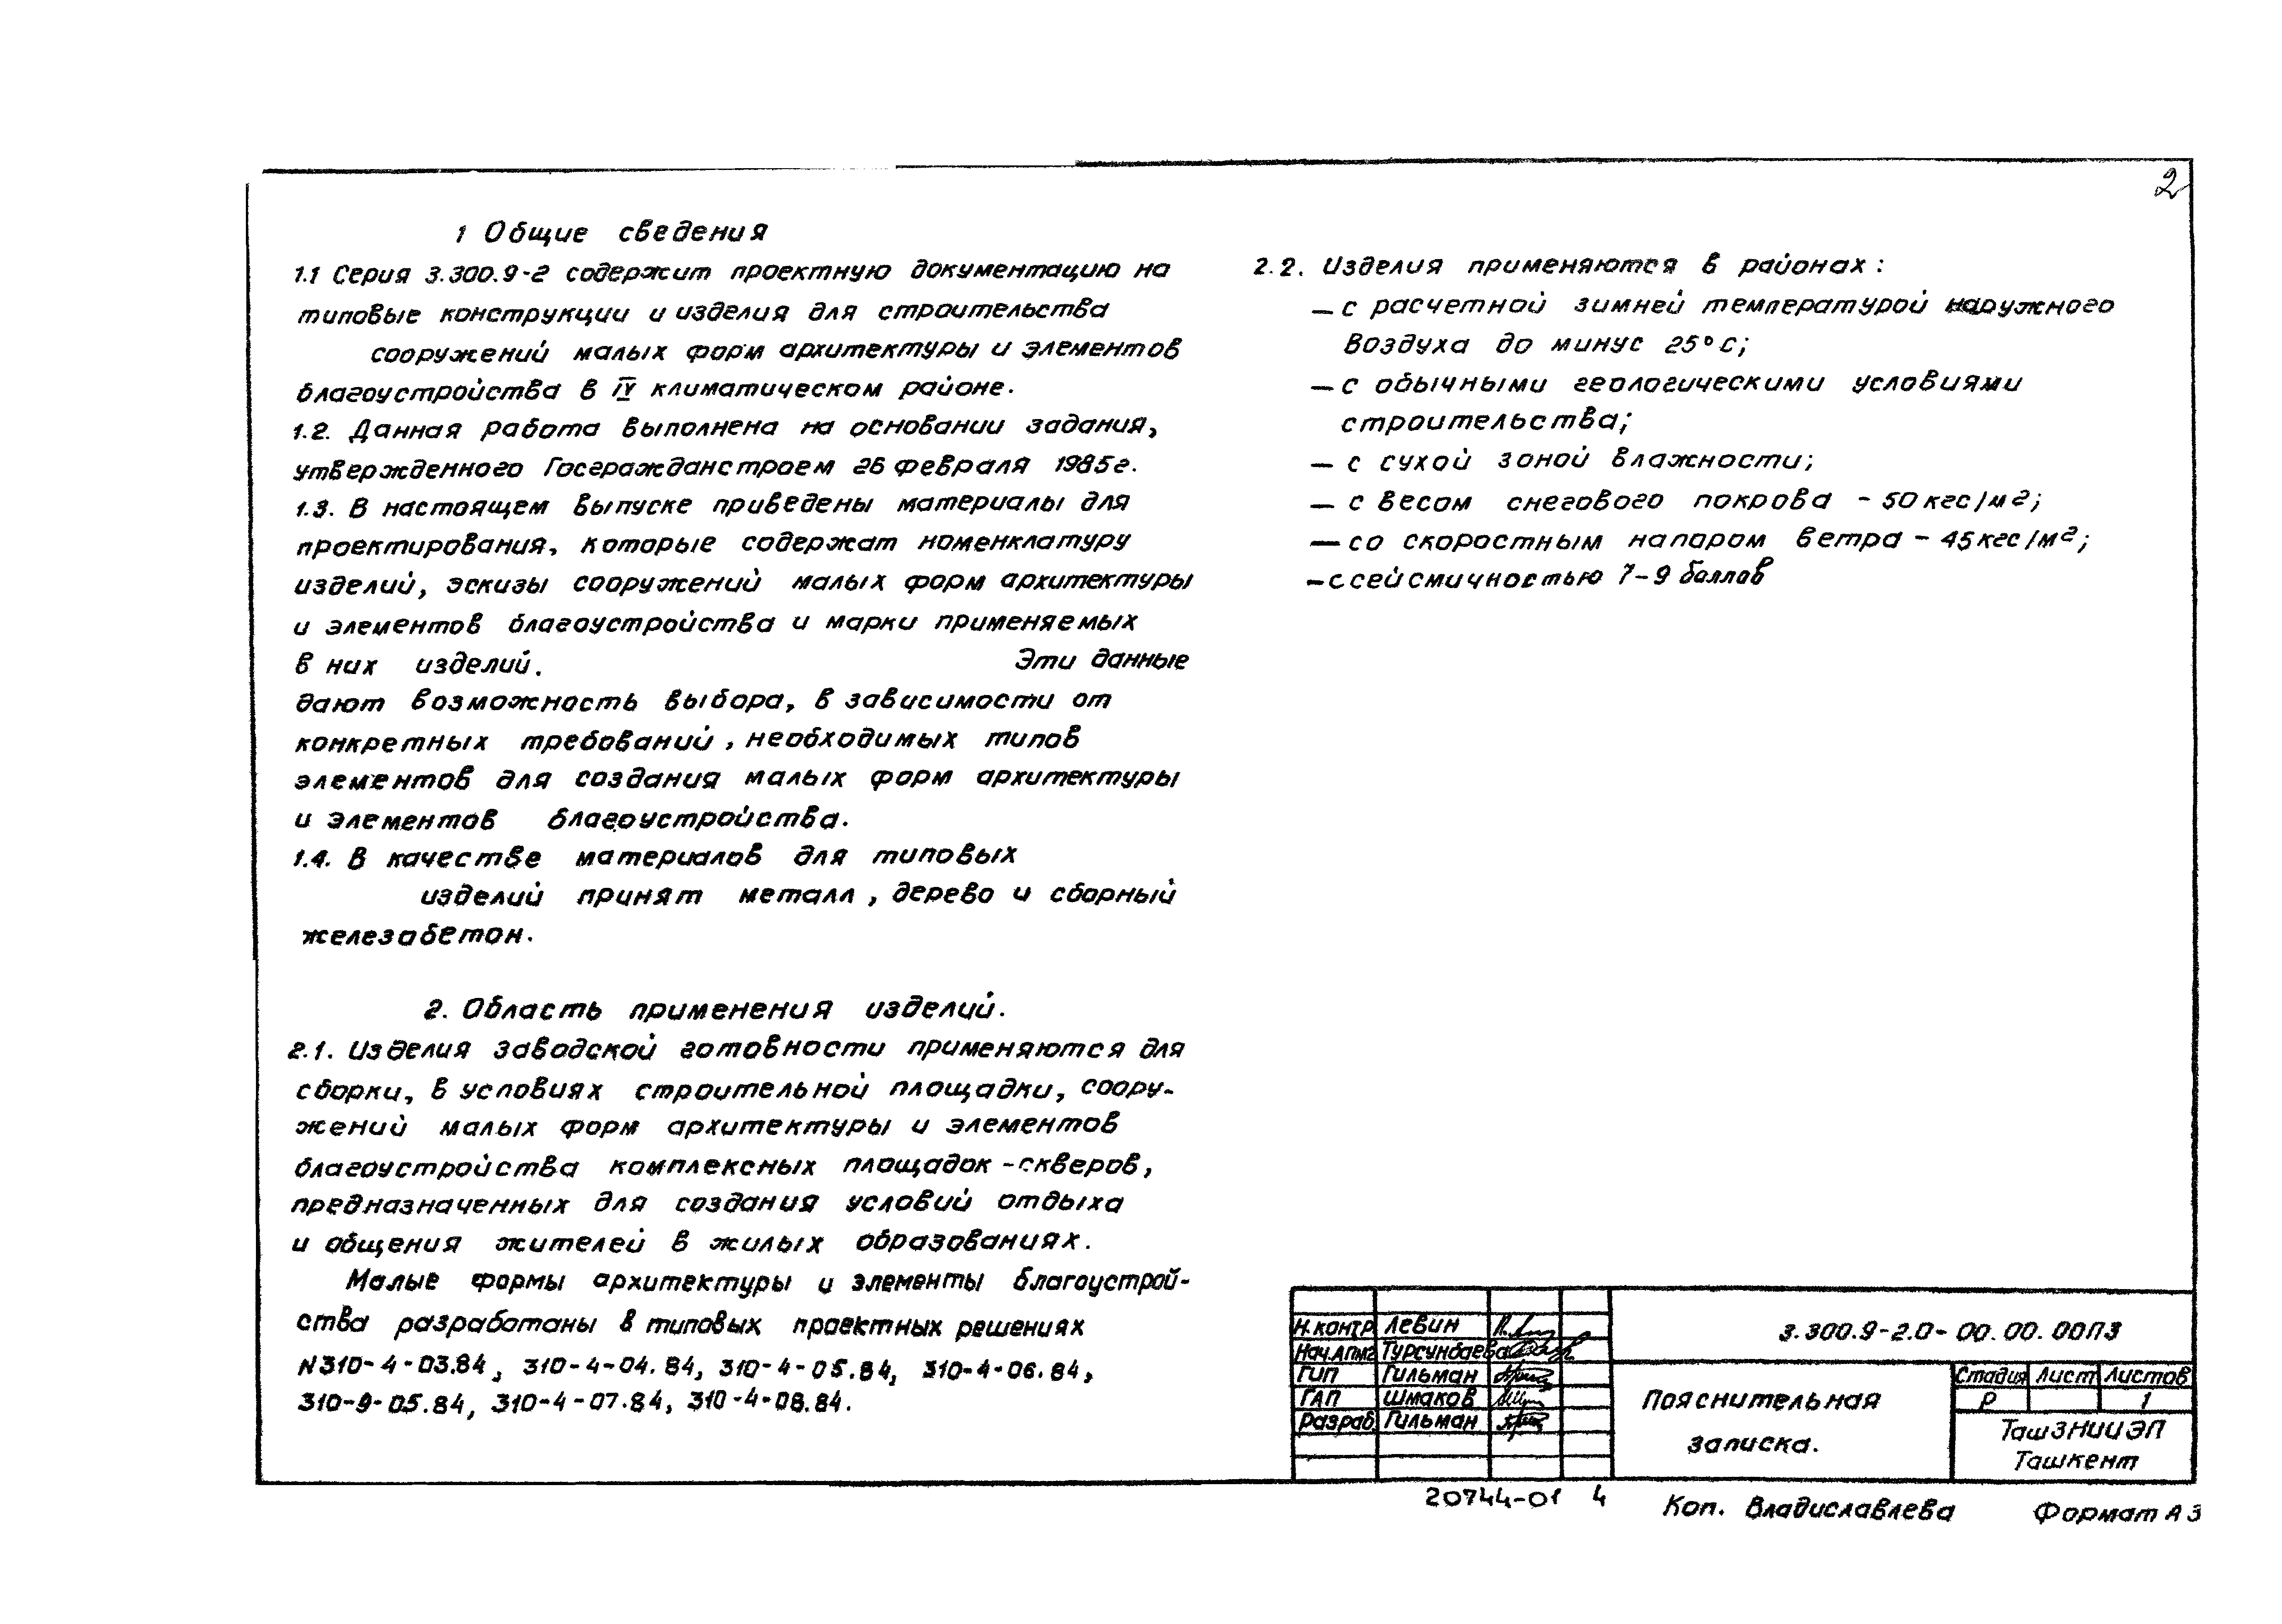 2
1 Общие сведения
1.1 Серия 3.300.9-2 содержит проектную документацию на
типовые конструкции и изделия для строительства
сооружений малых форм архитектуры и элементов
благоустройства в IV климатическом районе.
1.2. Данная работа выполнена на основании задания,
утвержденного Госгражданстроем 26 февраля 1985г.
1.3. В настоящем выпуске приведены материалы для
проектирования, которые содержат номенклатуру
изделий, эскизы сооружений малых форм архитектуры
и элементов благоустройства и марки применяемых
в них изделий. Эти данные
дают возможность выбора, в зависимости от
конкретных требований, необходимых типов
элементов для создания малых форм архитектуры
и элементов благоустройства.
1.4. В качестве материалов для типовых
изделий принят металл, дерево и сборный
железабетон.
2. Область применения изделий.
2.1. Изделия заводской готовности применяются для
сборки, в условиях строительной площадки, соору-
жений малых форм архитектуры и элементов
благоустройства комплексных площадок-скверов,
предназначенных для создания условий отдыха
и общения жителей в жилых образованиях.
Малые формы архитектуры и элементы благоустрой-
ства разработаны в типовых проектных решениях
N310-4-03.84, 310-4-04.84, 310-4-05.84, 310-4-06.84,
310-9-05.84, 310-4-07.84, 310-4-08.84.
2.2. Изделия применяются в районах:
— с расчетной зимней температурой наружного
воздуха до минус 25°с;
— с обычными геологическими условиями
строительства;
— с сухой зоной влажности;
— с весом снегового покрова - 50 кгс/м2;
— со скоростным напором ветра - 45 кгс/м2;
— с сейсмичностью 7-9 баллов
Н.контр Левин
Нач.АПМ2 Турсунбаева
ГИП Гильман
ГАП Шмаков
Разраб. Гильман
3.300.9-2.0-00.00.00ПЗ
Пояснительная
записка.
Стадия Лист Листов
Р 1
ТашЗНИИЭП
Ташкент
20744-01 4
Коп. Владиславлева Формат А3